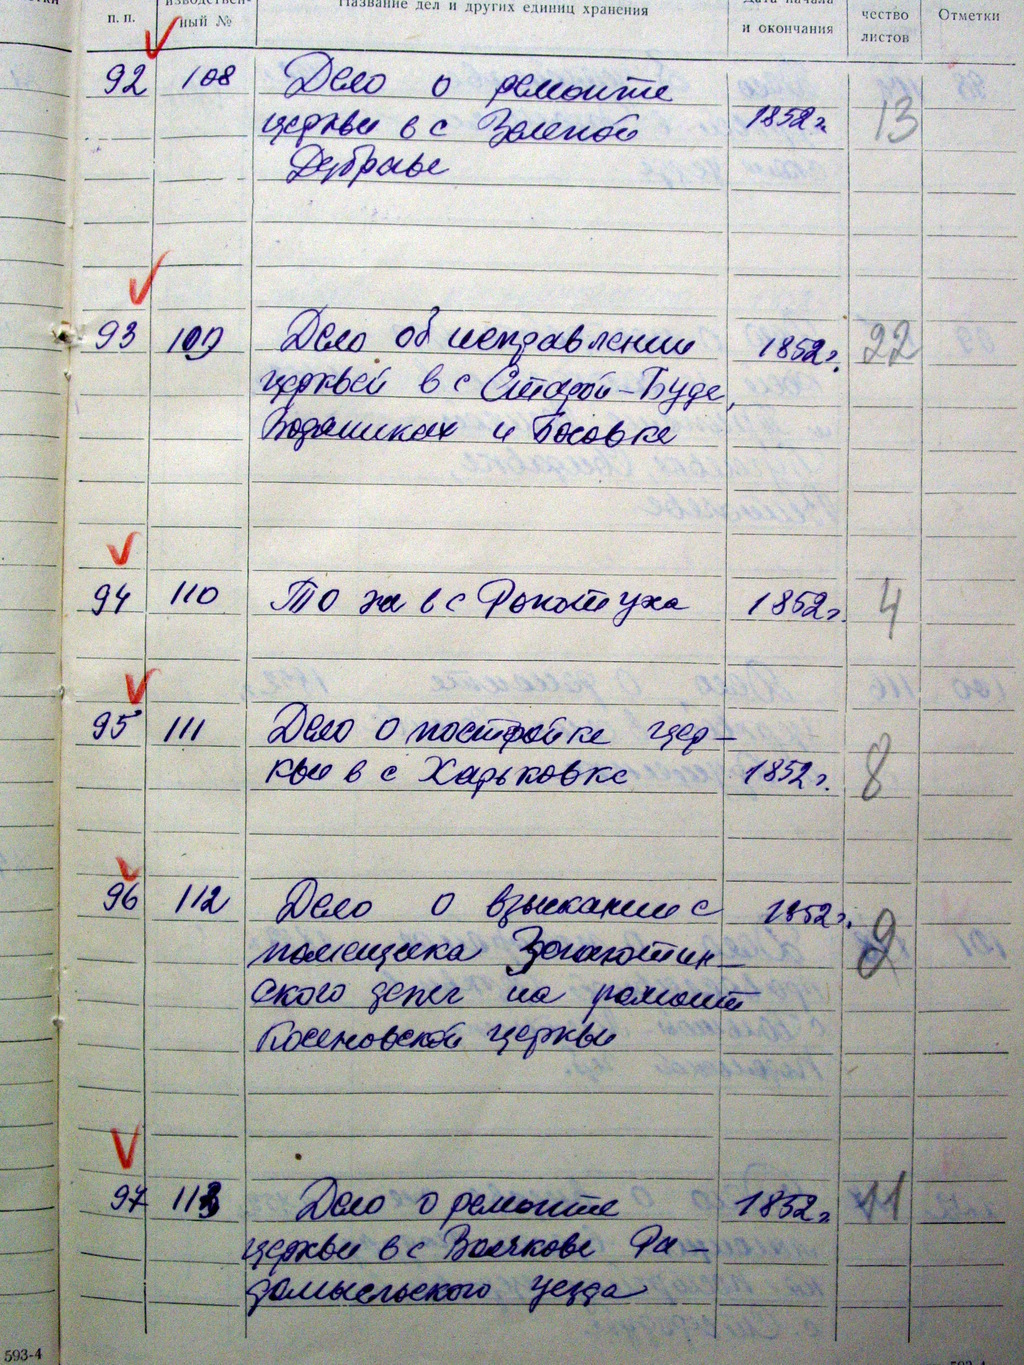 п. п. ный № Название дел и других единиц хранения и окончания чество листов Отметки
92 108 Дело о ремонте
церкви в с Зеленой 1852 г. 13
Дубраве
93 109 Дело об исправлении 1852 г. 22
церквей в с Старой-Буде,
Водяниках и Босовке
94 110 То же в с Рокотуха 1852 г. 4
95 111 Дело о постройке цер-
кви в с Харьковке 1852 г. 8
96 112 Дело о взыскании с 1852 г. 9
помещика
ского денег на ремонт
Косеновской церкви
97 113 Дело о ремонте 1852 г. 11
церкви в с Волчкове Ра-
домысльского уезда
593-4